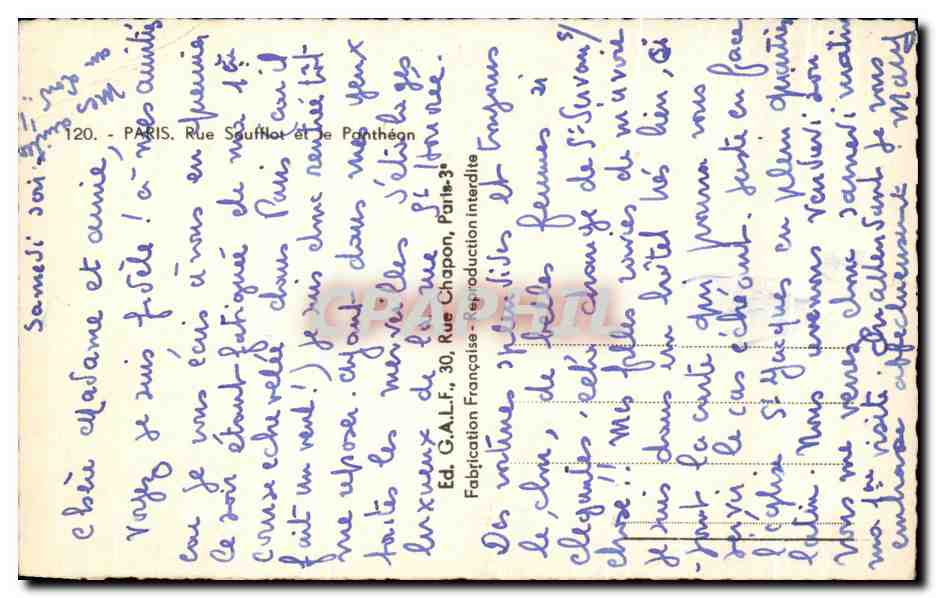 Samedi soir
Chère Madame et amie,
Voyez je suis fidèle! à mes amitiés
car je vous écris à vous en premier
Ce soir étant fatiguée de ma
course échevelée dans Paris car il
fait un vent! je suis donc rentrée tôt
me reposer. Ayant dans mes yeux
toutes les merveilles s'étalages
luxueux de la rue St Honoré.
Des voitures splendides et toujours
le chic, de belles femmes si
élégantes, cela change de St Servan s/
chose! Mes folles envies de m'avoir
je suis dans un hôtel très bien, ci
joint la carte qui pourra vous
servir le cas échéant. Juste en face
l'église St Jacques en plein quartier
latin. Nous arrivons vendredi donc
vous me verrez donc samedi matin
ma visite. En attendant je vous
embrasse affectueusement Mary
Mes amitiés
120. - PARIS. Rue Soufflot et le Panthéon
Ed. G.A.L.F., 30, Rue Chapon, Paris-3e
Fabrication Française - Reproduction interdite
CPAPHIL